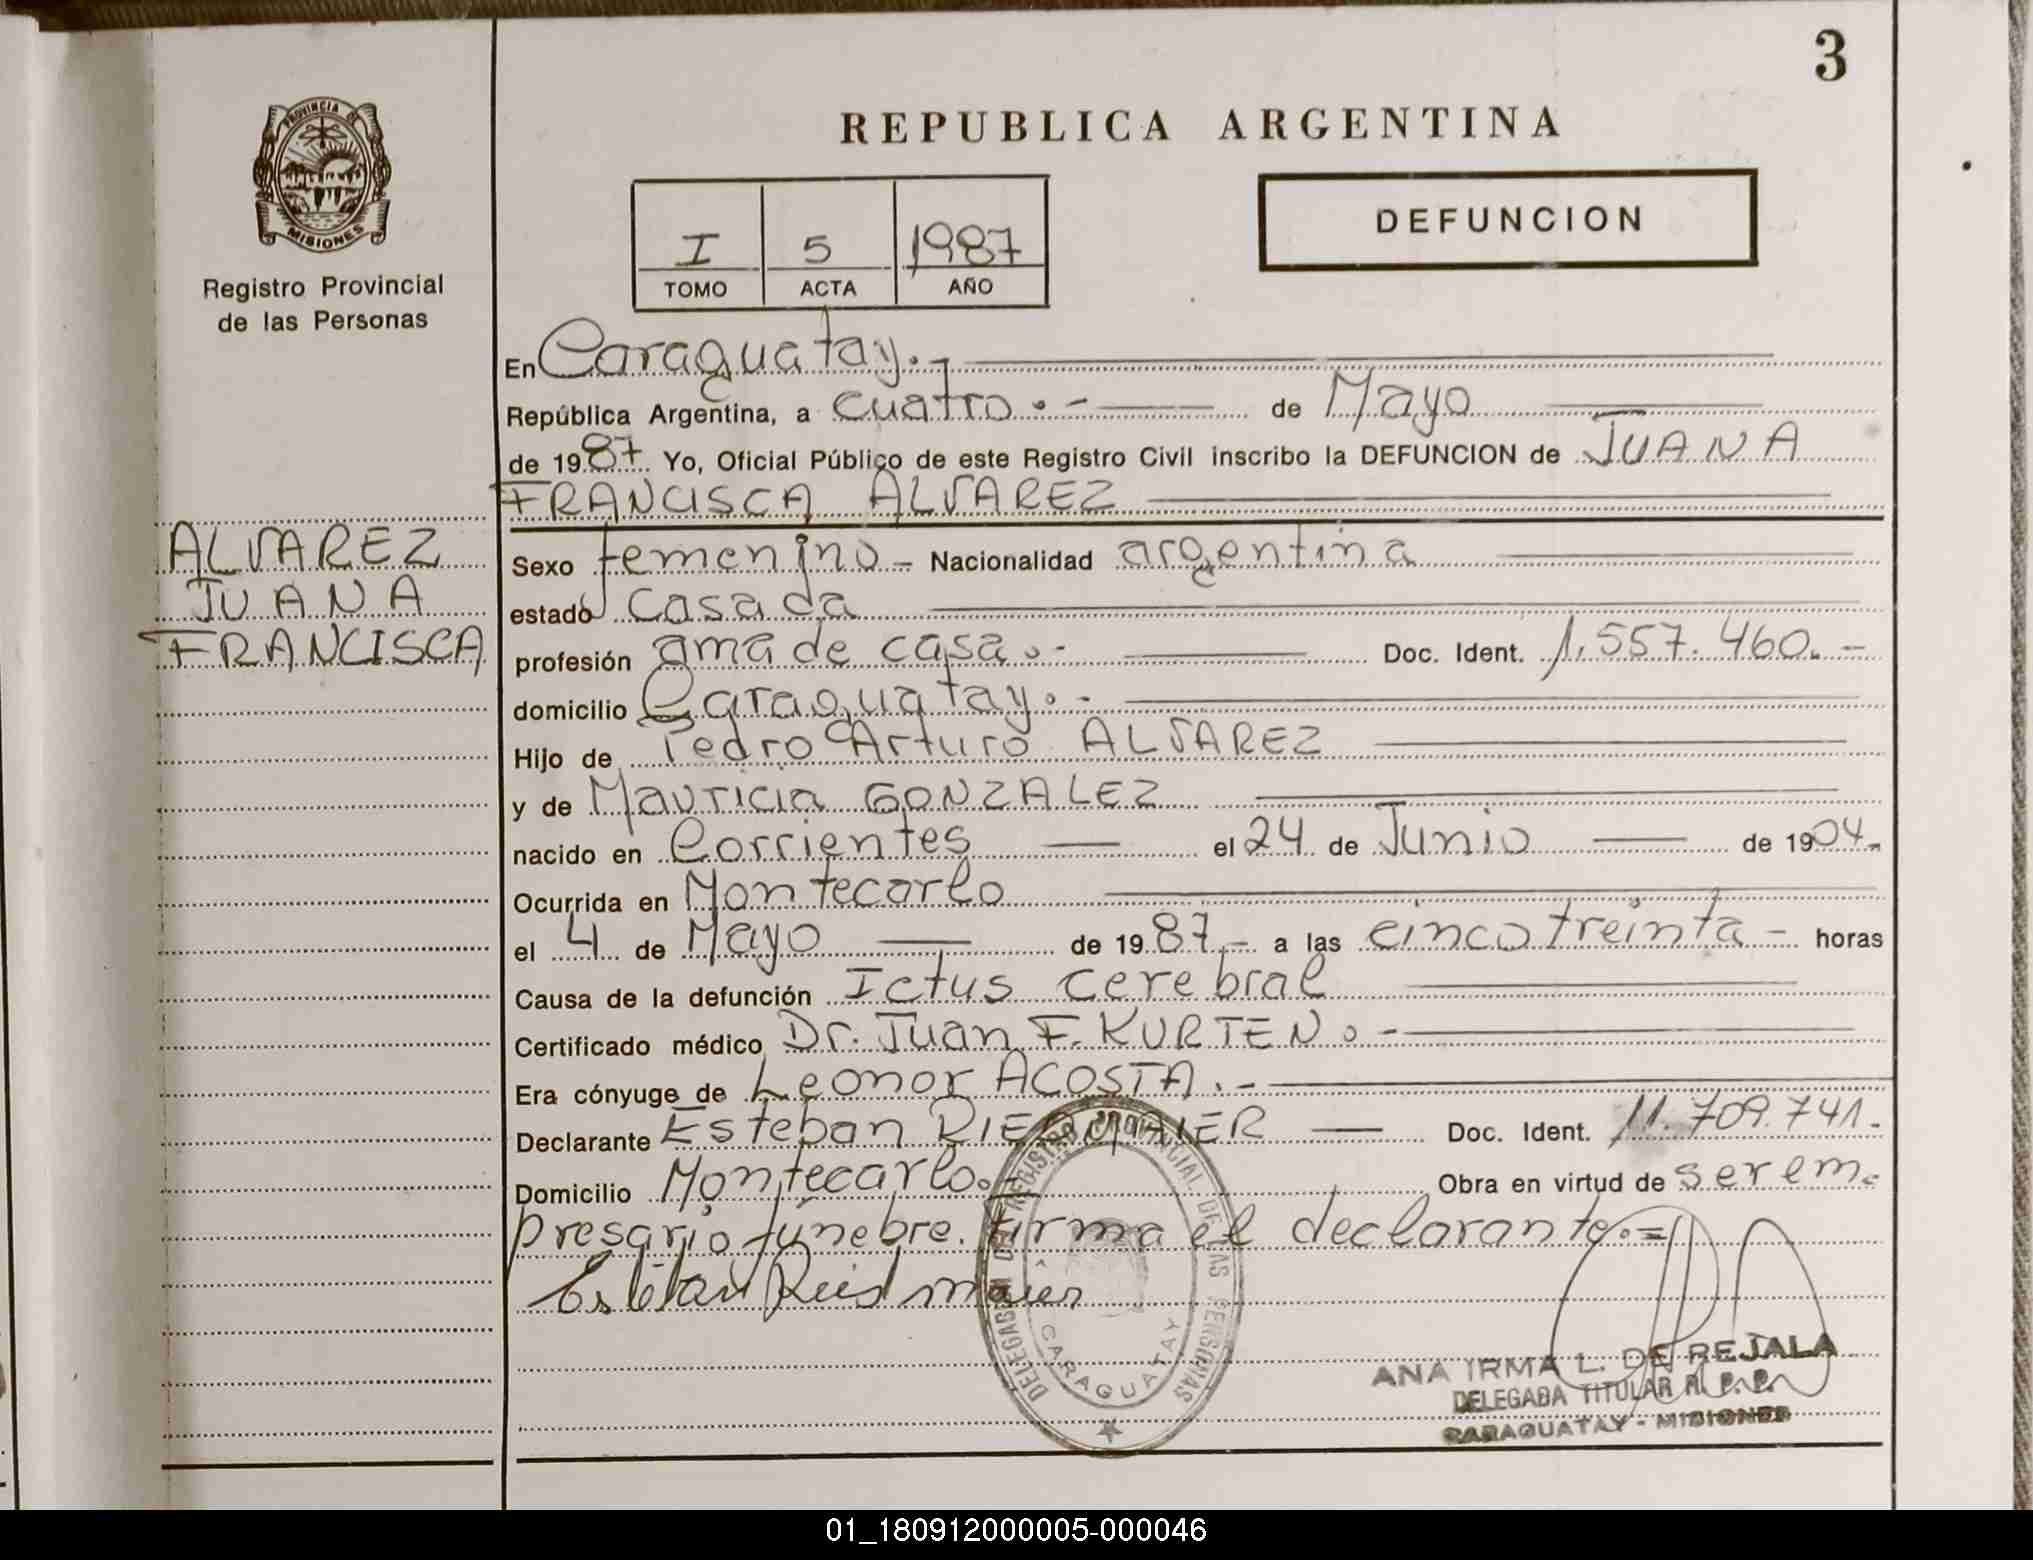 3
PROVINCIA DE
MISIONES
Registro Provincial
de las Personas
REPUBLICA ARGENTINA
I 5 1987
TOMO ACTA AÑO
DEFUNCION
En Caraguatay.-
República Argentina, a cuatro.- de Mayo
de 1987 Yo, Oficial Público de este Registro Civil inscribo la DEFUNCION de JUANA
FRANCISCA ALVAREZ
ALVAREZ
JUANA
FRANCISCA
Sexo femenino - Nacionalidad argentina
estado casada
profesión ama de casa.- Doc. Ident. 1.557.460.-
domicilio Caraguatay.-
Hijo de Pedro Arturo ALVAREZ
y de Mauricia GONZALEZ
nacido en Corrientes el 24 de Junio de 1904.
Ocurrida en Montecarlo
el 4 de Mayo de 1987.- a las cinco treinta - horas
Causa de la defunción Ictus cerebral
Certificado médico Dr. Juan F. KURTEN.-
Era cónyuge de Leonor ACOSTA.-
Declarante Esteban Doc. Ident. 11.709.741.
Domicilio Montecarlo. Obra en virtud de ser em-
presario fúnebre. Firma el declarante.=
Esteban Reidmaier
DELEGACION DEL REGISTRO PROVINCIAL DE LAS PERSONAS
CARAGUATAY
ANA IRMA L. DE REJALA
DELEGADA TITULAR R. P. P.
CARAGUATAY - MISIONES
01_180912000005-000046